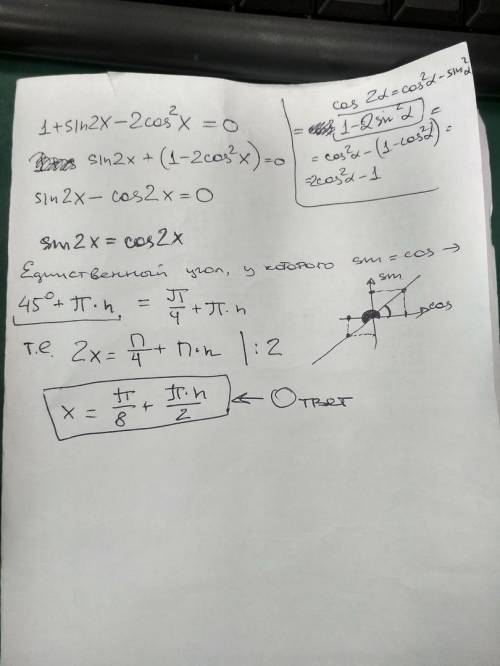 1+sin2x-2cos²x=0
sin2x+(1-2cos²x)=0
sin2x-cos2x=0
sin2x=cos2x
cos2α=cos²α-sin²α
=1-2sin²α=
=cos²α-(1-cos²α)=
=2cos²α-1
Единственный угол, у которого sin=cos →
45°+π·n=π/4+π·n
sin
cos
т.е. 2x=π/4+π·n |:2
x=π/8+π·n/2 ← Ответ